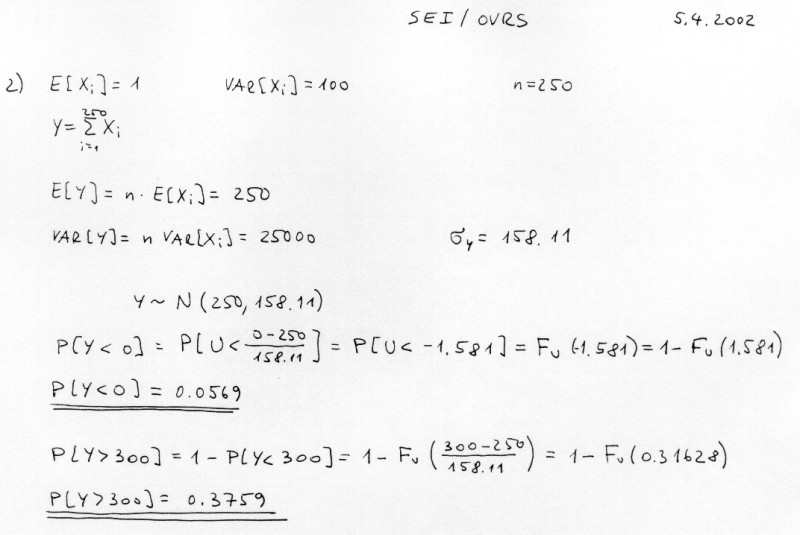 SEI / OVRS 5.4.2002
2) E[Xᵢ] = 1 VAR[Xᵢ] = 100 n=250
Y = ∑_{i=1}^{250} Xᵢ
E[Y] = n · E[Xᵢ] = 250
VAR[Y] = n VAR[Xᵢ] = 25000 σ_y = 158.11
Y ~ N (250, 158.11)
P[Y < 0] = P[U < \frac{0-250}{158.11}] = P[U < -1.581] = F_U (-1.581) = 1 - F_U (1.581)
P[Y<0] = 0.0569
P[Y>300] = 1 - P[Y<300] = 1 - F_U (\frac{300-250}{158.11}) = 1 - F_U (0.31628)
P[Y>300] = 0.3759